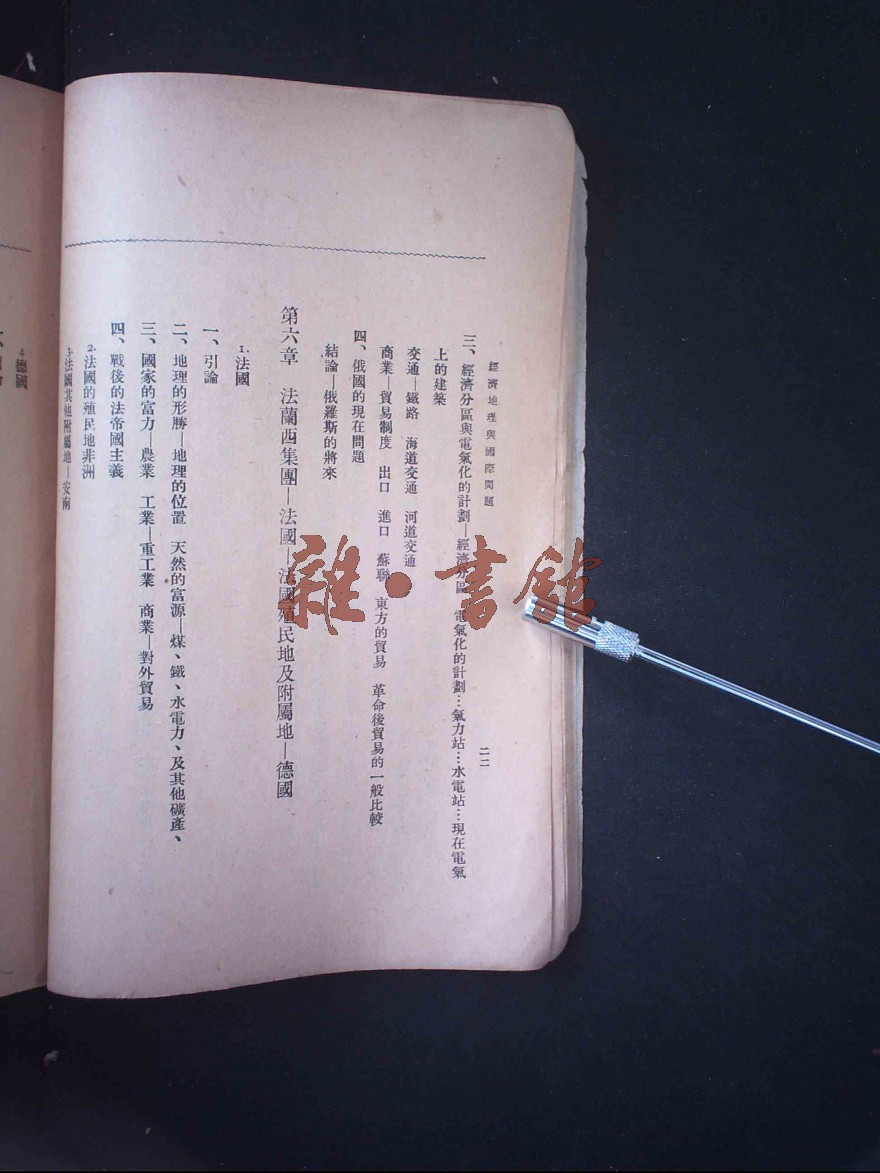 經濟地理與國際問題
二二
三、經濟分區與電氣化的計劃—經濟分區 電氣化的計劃…氣力站…水電站…現在電氣
上的建築
交通—鐵路 海道交通 河道交通
商業—貿易制度 出口 進口 蘇聯 東方的貿易 革命後貿易的一般比較
四、俄國的現在問題
結論—俄羅斯的將來
第六章 法蘭西集團—法國—法國殖民地及附屬地—德國
1.法國
一、引論
二、地理的形勝—地理的位置 天然的富源—煤、鐵、水電力、及其他礦產、
三、國家的富力—農業 工業—重工業 商業—對外貿易
四、戰後的法帝國主義
2.法國的殖民地非洲
3.法國其他附屬地—安南
4.德國
雜·書館